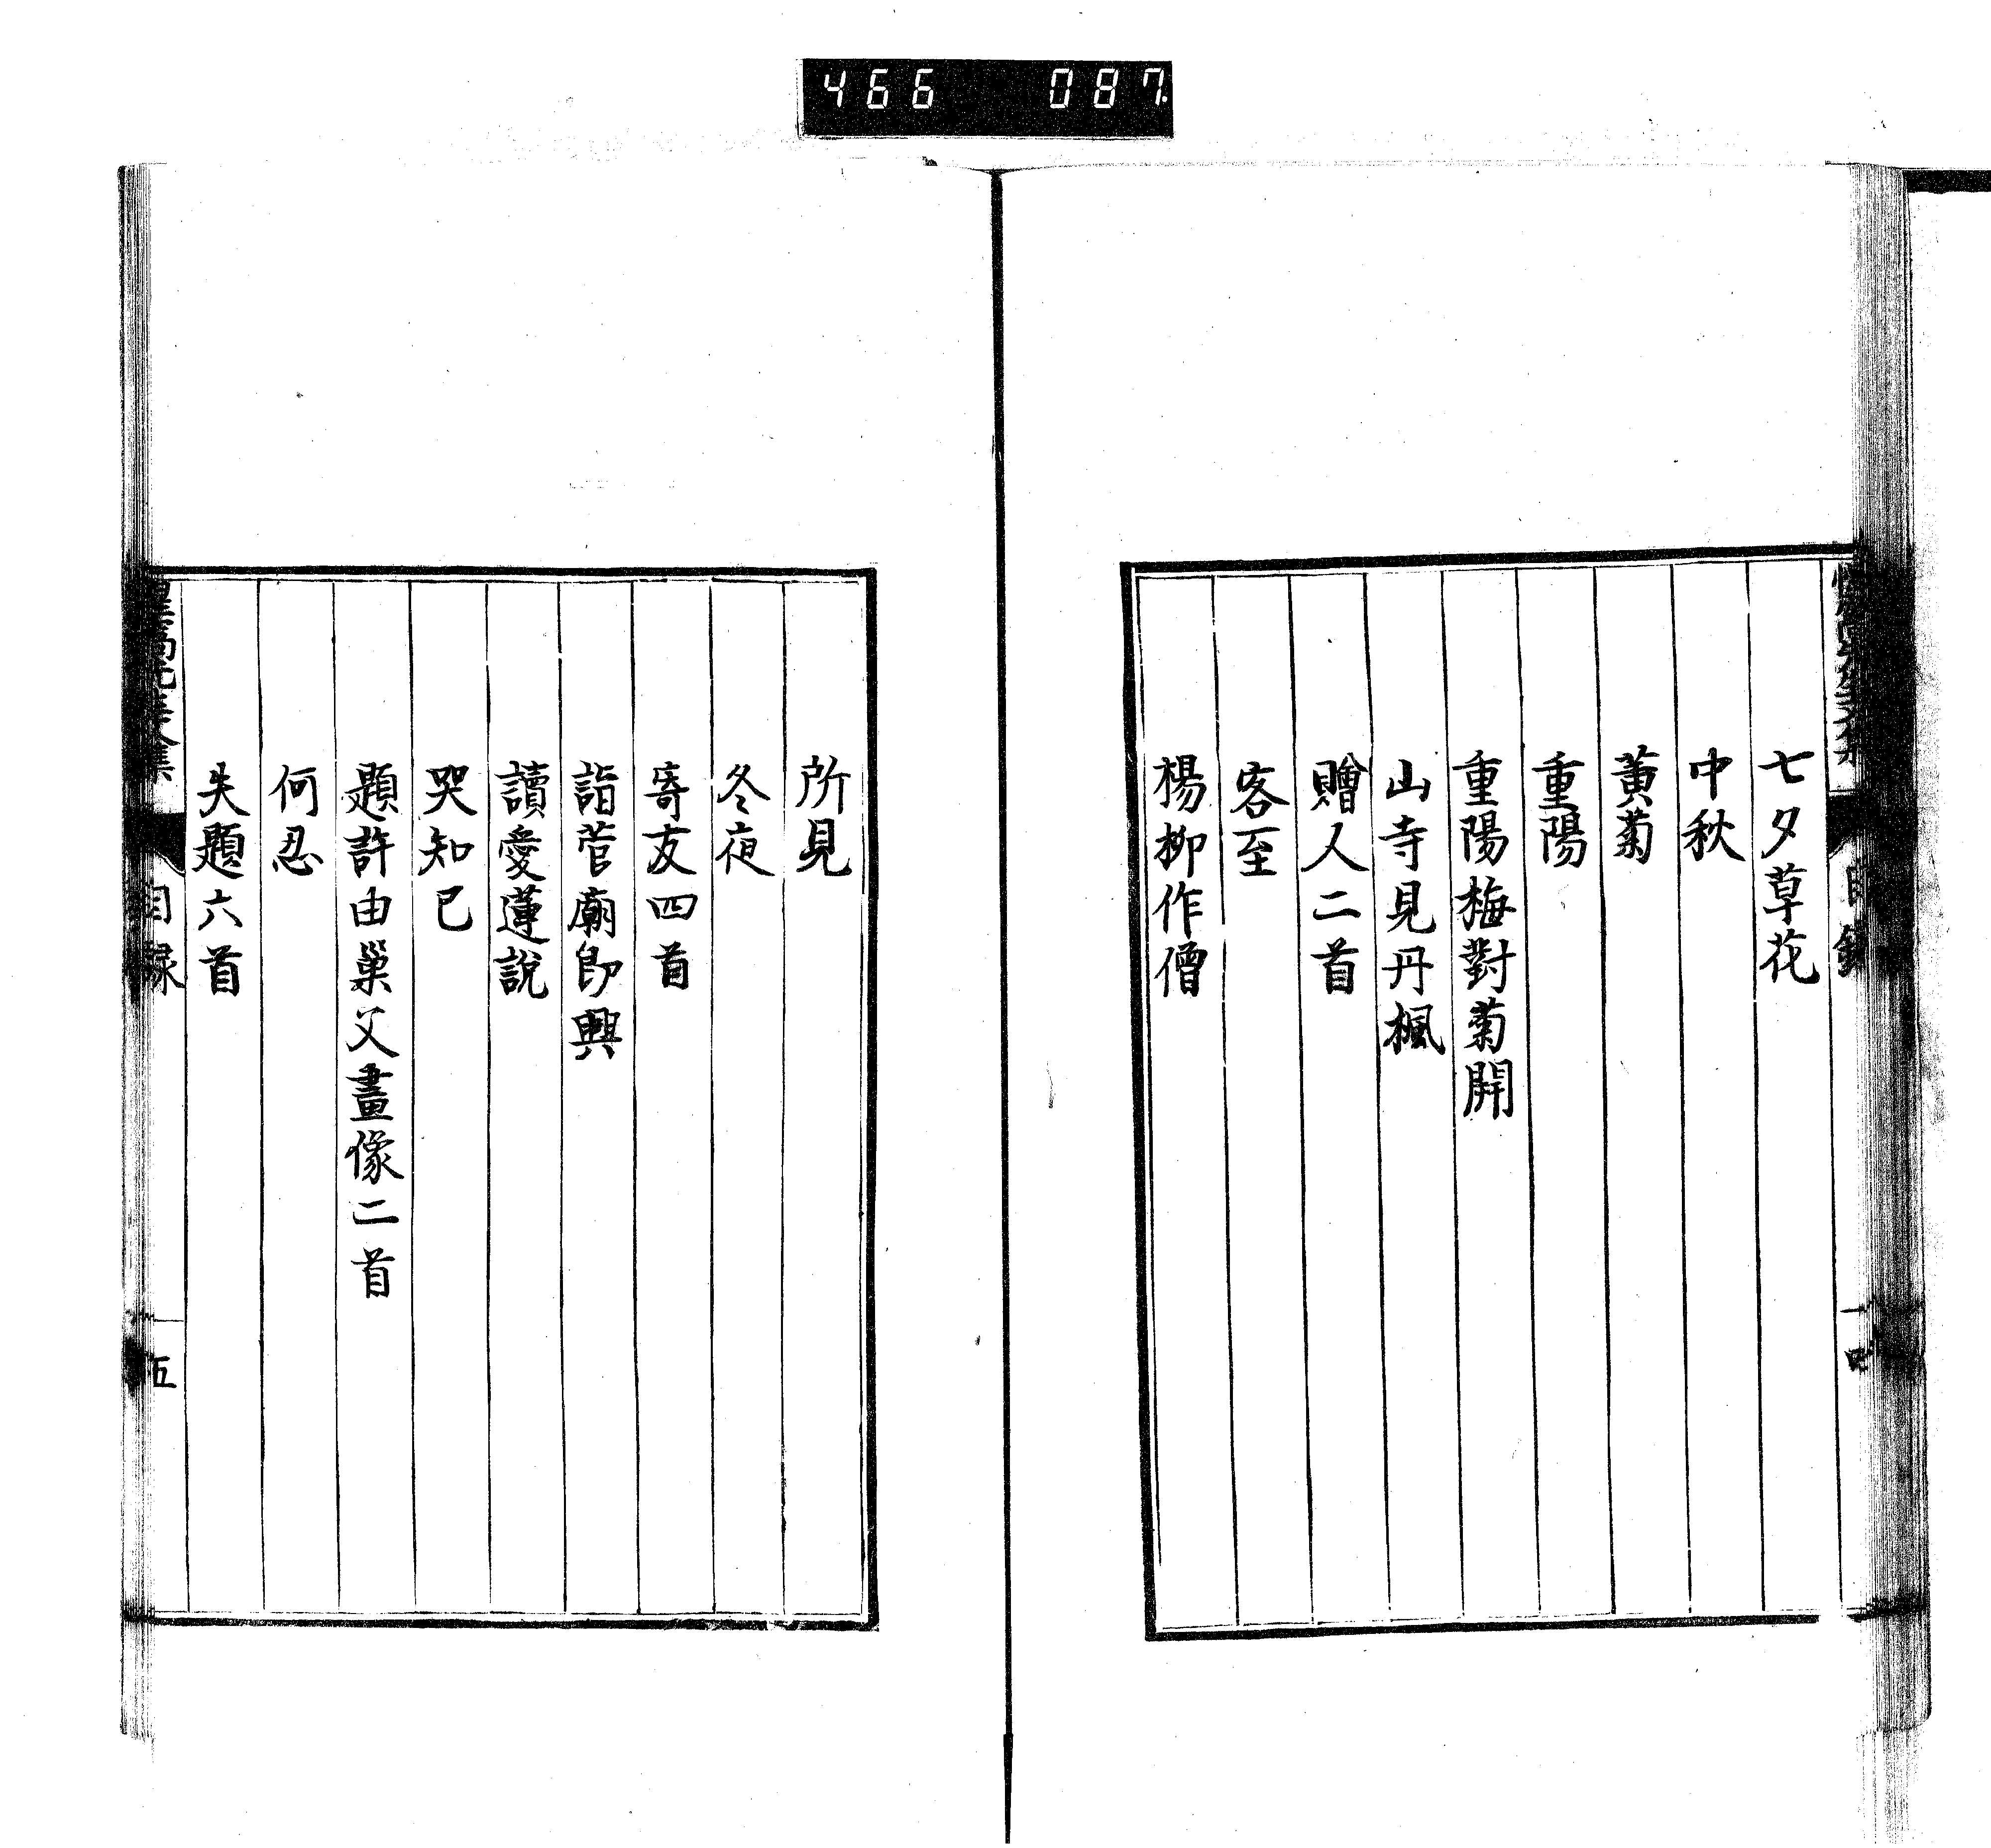 466 087
七夕草花
中秋
黄菊
重陽
重陽梅對菊開
山寺見丹楓
贈人二首
客至
楊柳作僧
所見
冬夜
寄友四首
詣菅廟即興
讀愛蓮說
哭知己
題許由巢父畫像二首
何忍
失題六首
目録
五